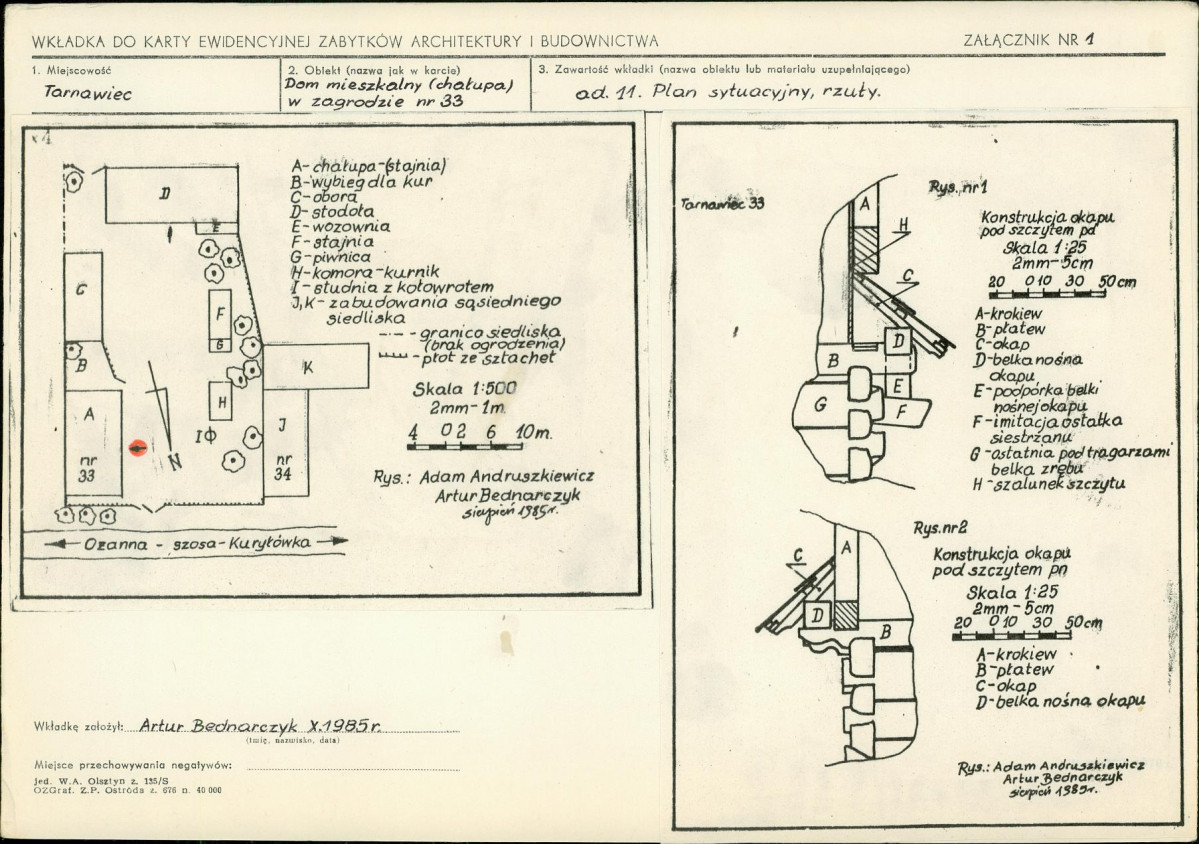 WKŁADKA DO KARTY EWIDENCYJNEJ ZABYTKÓW ARCHITEKTURY I BUDOWNICTWA
ZAŁĄCZNIK NR 1
1. Miejscowość
Tarnawiec
2. Obiekt (nazwa jak w karcie)
Dom mieszkalny (chałupa)
w zagrodzie nr 33
3. Zawartość wkładki (nazwa obiektu lub materiału uzupełniającego)
ad. 11. Plan sytuacyjny, rzuty.
D
E
C
F
G
B
K
A
H
J
I
nr
33
N
nr
34
Ozanna - szosa - Kuryłówka
A - chałupa - (stajnia)
B - wybieg dla kur
C - obora
D - stodoła
E - wozownia
F - stajnia
G - piwnica
H - komora - kurnik
I - studnia z kołowrotem
J, K - zabudowania sąsiedniego
siedliska
- granica siedliska
(brak ogrodzenia)
- płot ze sztachet
Skala 1:500
2mm - 1m
4 0 2 6 10m.
Rys.: Adam Andruszkiewicz
Artur Bednarczyk
sierpień 1985r.
Tarnawiec 33
Rys. nr 1
A
H
C
D
B
E
G
F
Konstrukcja okapu
pod szczytem pd
Skala 1:25
2mm - 5cm
20 0 10 30 50cm
A - krokiew
B - płatew
C - okap
D - belka nośna
okapu
E - podpórka belki
nośnej okapu
F - imitacja ostatka
siestrzanu
G - ostatnia pod tragarzami
belka zrębu
H - szalunek szczytu
Rys. nr 2
A
C
D
B
Konstrukcja okapu
pod szczytem pn
Skala 1:25
2mm - 5cm
20 0 10 30 50cm
A - krokiew
B - płatew
C - okap
D - belka nośna okapu
Rys.: Adam Andruszkiewicz
Artur Bednarczyk
sierpień 1985r.
Wkładkę założył: Artur Bednarczyk X.1985r.
(imię, nazwisko, data)
Miejsce przechowywania negatywów:
Jed. W.A. Olsztyn z. 135/S
OZGraf. Z.P. Ostróda z. 676 n. 40 000